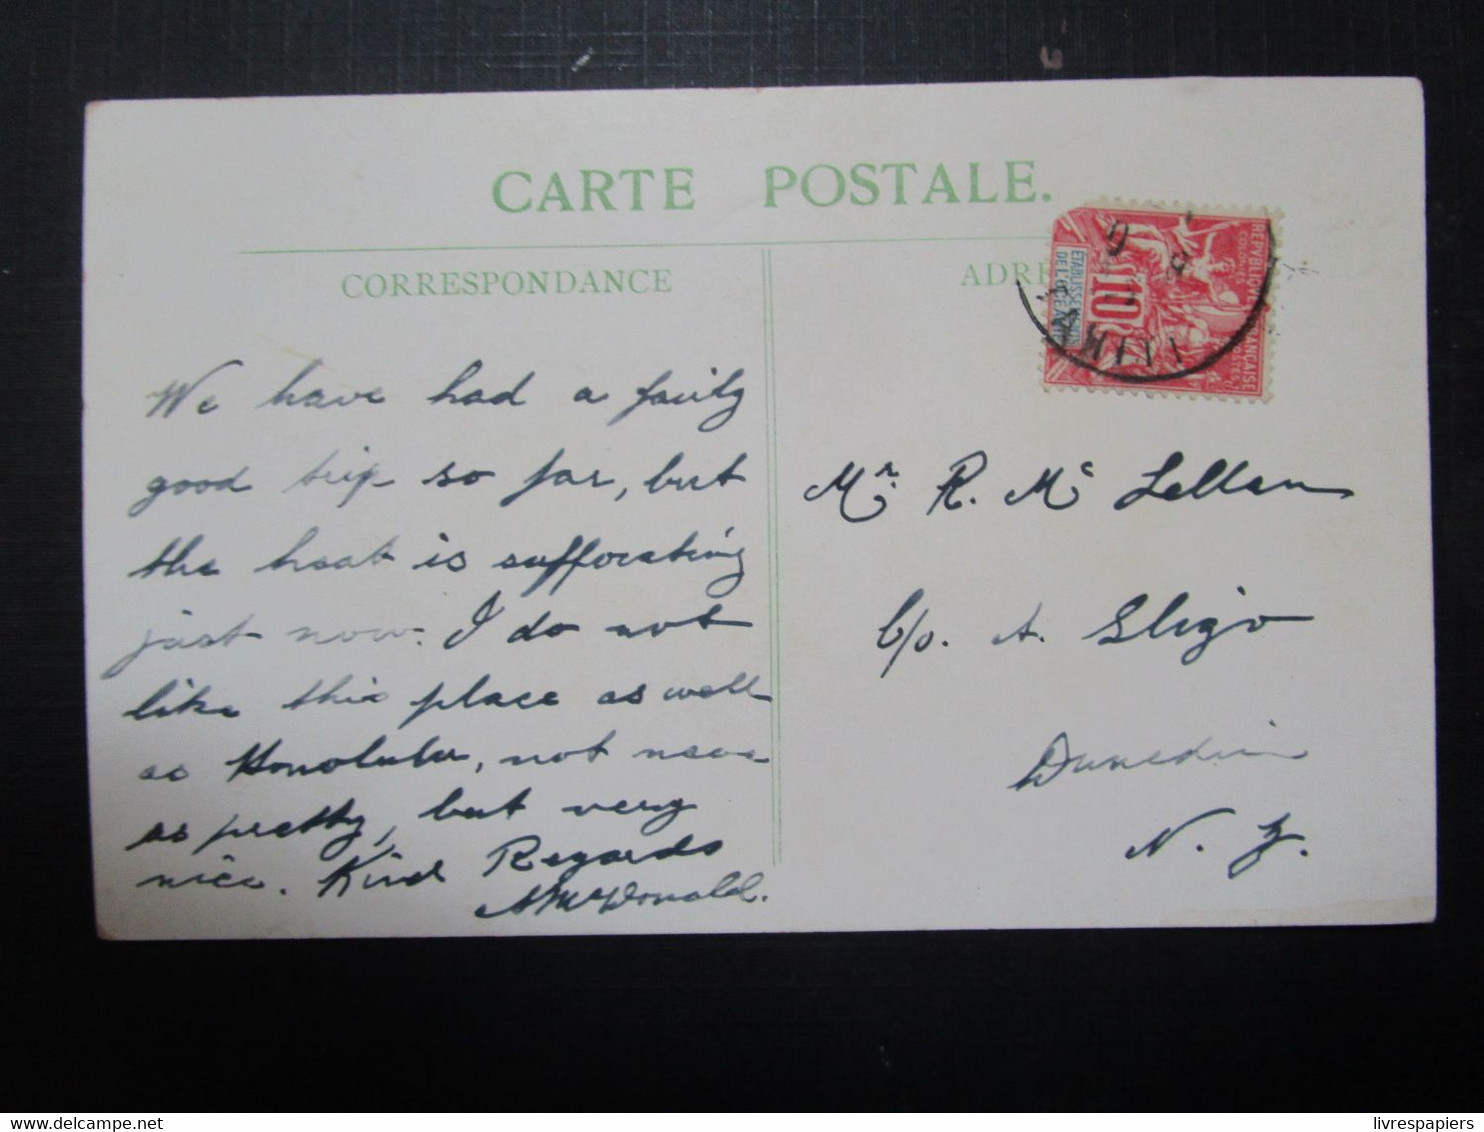 CARTE POSTALE.
CORRESPONDANCE
ADRE
REPVBLIQVE FRANÇAISE
ETABLISSE
DE L'OCEANIE
10
We have had a fairly
good trip so far, but
the heat is suffocating
just now. I do not
like this place as well
as Honolulu, not near
as pretty, but very
nice. Kind Regards
A McDonald.
Mr. R. Mc Lellan
C/o. A. Sligo
Dunedin
N. Z.
delcampe.net
livrespapiers